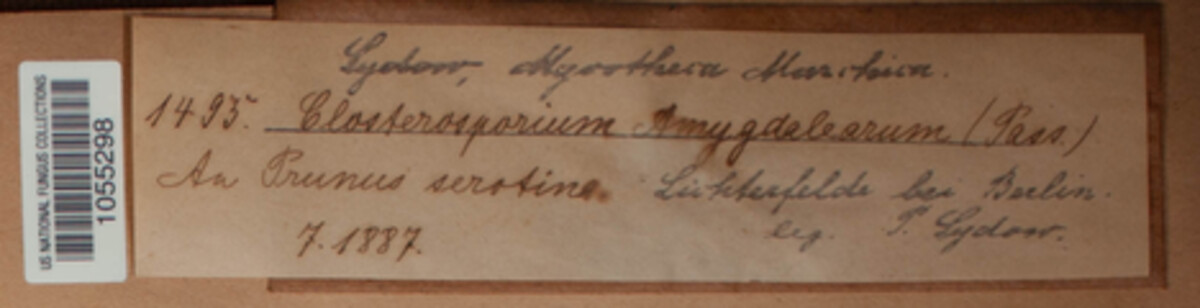 US NATIONAL FUNGUS COLLECTIONS
1055298
Sydow, Mycotheca Marchica.
1495. Closterosporium Amygdalearum (Pass.)
An Prunus serotina. Lichterfelde bei Berlin.
7.1887. leg. P. Sydow.